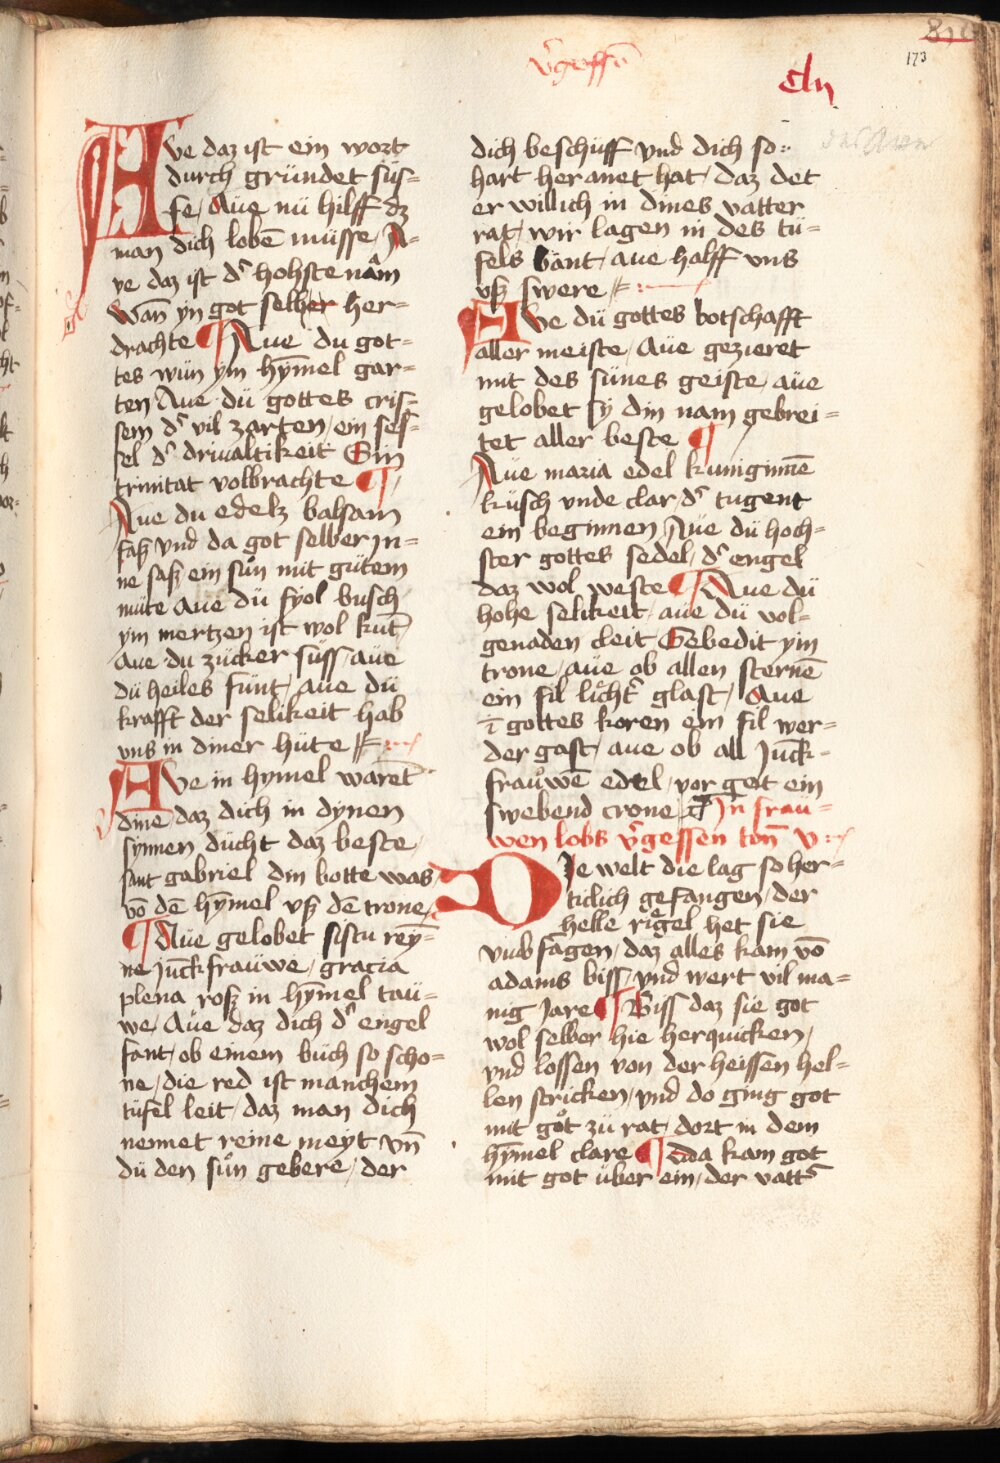 v̾geſſē
cln
173
AVe daz ist ein wort
durch gründet süs=
se / Aüe nü hilff dz
man dich lobē müsse / A=
ve daz ist d̾ hohste nam
Wañ yn got selber her=
drachte ¶ Aue du got=
tes wün ym hȳmel gar=
ten Aue dü gottes cris=
sem d̾ vil zarten / ein ses=
sel d̾ driualtikeit Ein
trinitat volbrachte ¶
Aue du edelz balsam
fasz vnd da got selber jn=
ne sasz ein sůn mit gütem
müte Aue dü fyol busch
ym mertzen ist wol kūt
Aue du zücker süss / aüe
dü heiles fünt / aue dü
krafft der selikeit hab
vns in diner hüte
AVe in hymel waret
dinē daz dich in dynen
synnen dücht daz beste /
sant gabriel din botte was /
vō dē hȳmel vsz dē trone /
¶ Aüe gelobet sistu reȳ=
ne junckfraüwe / gracia
plena rosz in hȳmel taü=
we / Aüe daz dich d̾ engel
fant / ob einem büch so scho=
ne / die red ist manchem
tüfel leit / daz man dich
nennet reine meyt vñ
dü den sůn gebere / der
dich beschüff vnd dich so
hart heranet hat / daz det
er willich in dines vatter
rat / wir lagen in des tü=
fels bant / aue halff vns
vsz swere
AVe dü gottes botschafft
aller meiste / Aüe gezieret
mit des sünes geiste / aüe
gelobet sÿ din nam gebrei=
tet aller beste ¶
Aüe maria edel kuniginnē
küsch vnde clar / d̾ tugent
ein beginnen / Aüe dü hoch=
ster gottes sedel / d̾ engel
daz wol weste ¶ Aue dü
hohe selikeit / aue dü vol=
genaden cleit Gebedit ym
trone / aüe ob allen sternē
ein fil lücht̾ glast / Aue
ī gottes koren ein fil wer=
der gast / aue ob all Junck=
fraůwē edel / vor got ein
swebend crone Jn fraü=
wen lobs v̾gessen ton̄ v
DIe welt die lag so her=
ticlich gefangen / der
helle rigel het sie
vmb fangen / daz alles kam vō
adams biss / vnd wert vil ma=
nig Jare ¶ Biss daz sie got
wol selber hie herquicken /
vnd lossen von der heissen hel=
len stricken / vnd do ging got
mit got zü rat / dort in dem
hȳmel clare ¶ Dda kam got
mit got über ein / der vatt̾